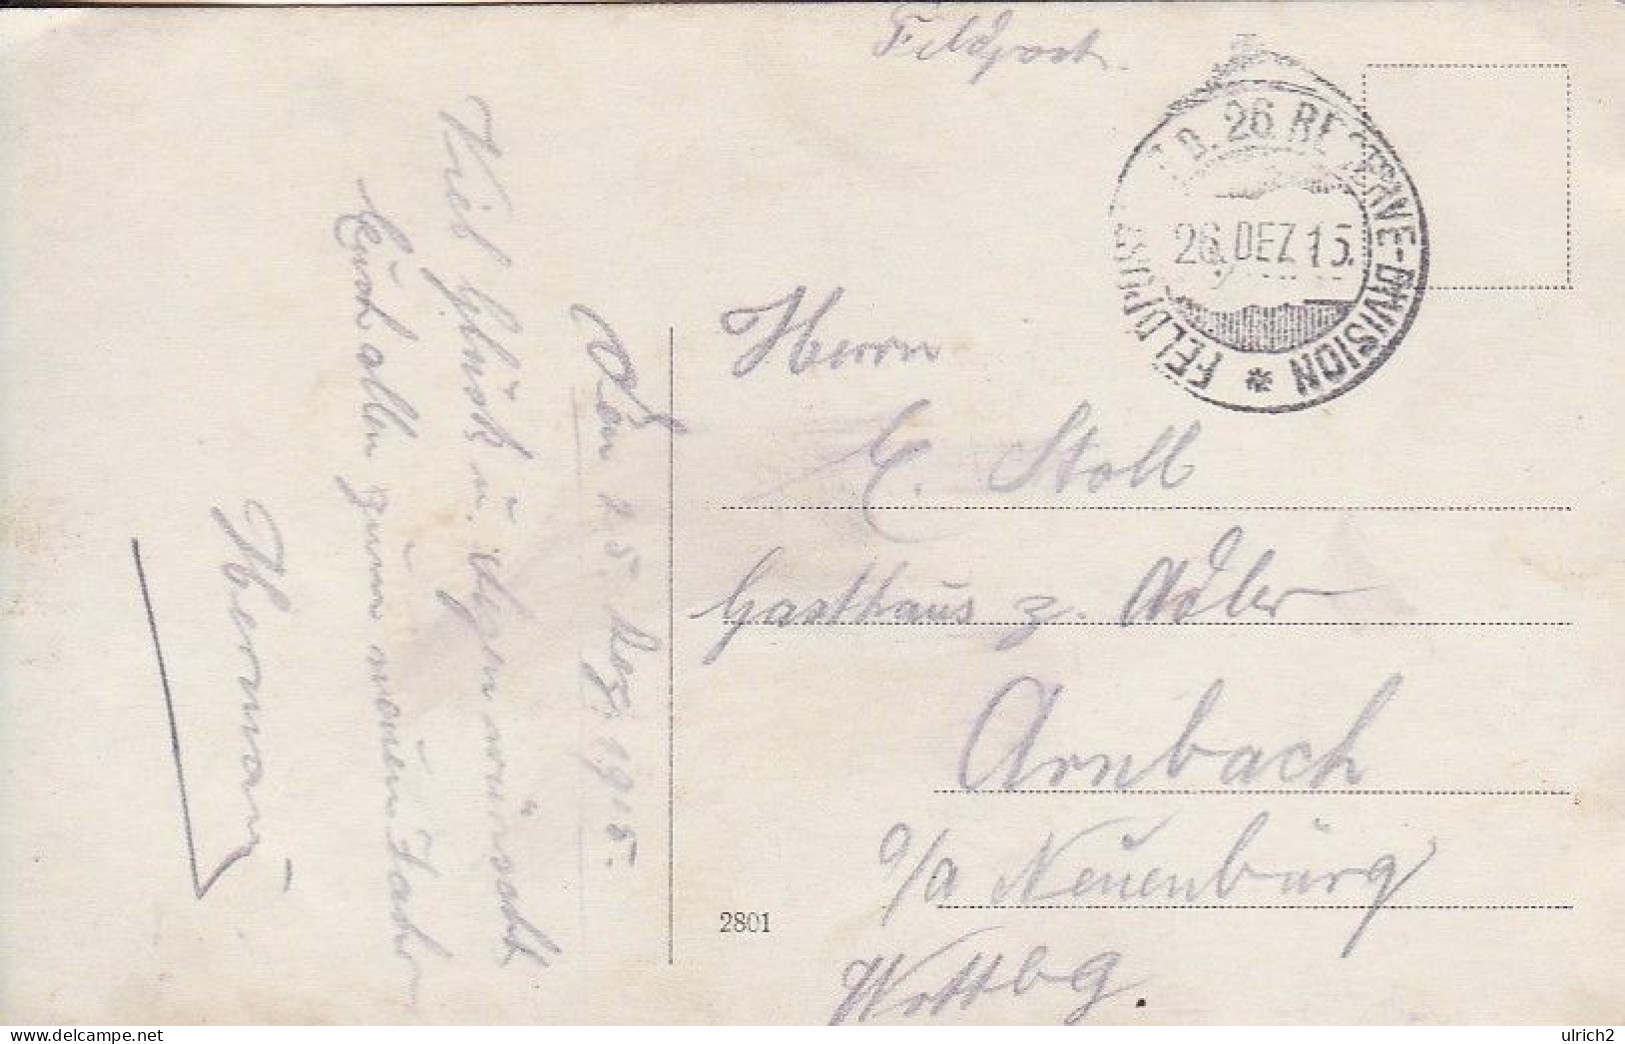 Feldpost.
FELDPOST D. 26. RESERVE-DIVISION *
26. DEZ 15.
Den 25. Dez. 1915.
Viel Glück u. Segen wünscht
Euch allen zum neuen Jahr
Hermann
Herrn
E. Stoll
Gasthaus z. Adler
Arnbach
o/a Neuenbürg
Wttbg.
2801
delcampe.net
ulrich2